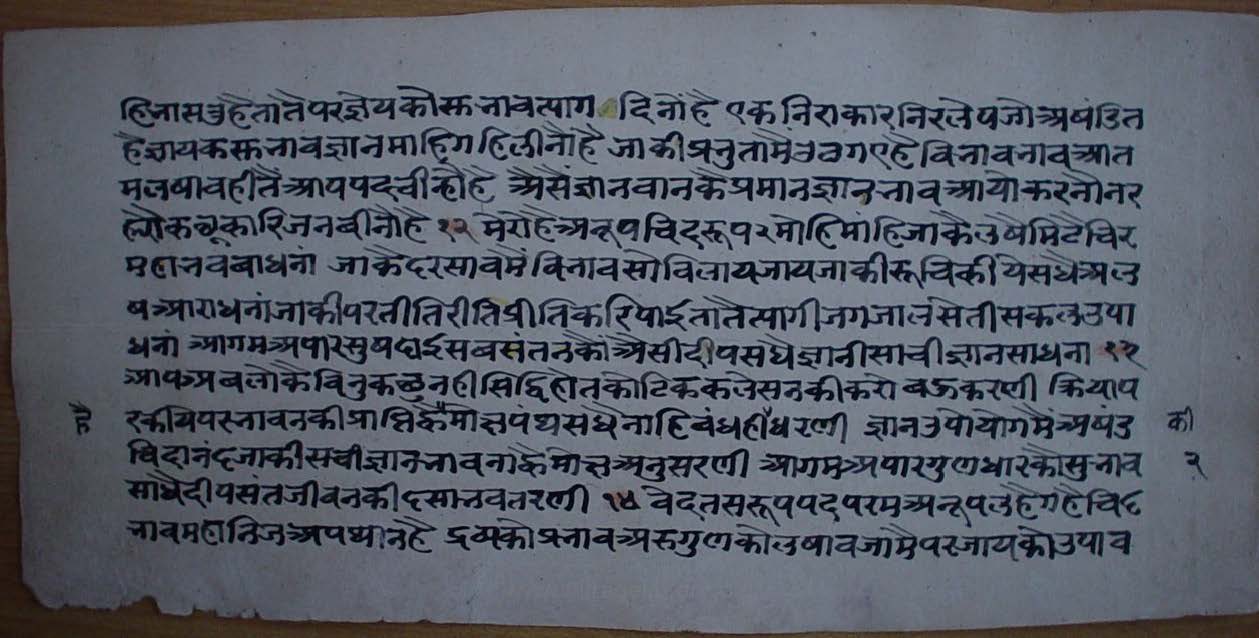 हिनासउहैतातैपरज्ञेयकौसुनावत्याग दिनौंहै एकनिराकारनिरलेपजोअषंडित
हैज्ञायकसुनावज्ञानमाहिगहिलीनौंहै जाकीप्रनुतामैउठगएहैविनावनावआत
मलषावहीतैआपपदचीन्होहै अैसैज्ञानवानकैप्रमानज्ञाननावआयोकरनौनर
ह्योकछूकारिजनबीनौहै १२ मेरोहैअनूपचिदरूपरमोहिमांहिजाकैलषैमिटैचिर
महानवबाधनां जाकैदरसावमैंविनावसोविलायजायजाकीरुचिकीयेसधैअल
षआराधनांजाकीपरतीतिरीतिप्रीतिकरिपाईतातैत्यागीजगजालसेतीसकलउपा
धनां आगमअपारसुषदाईसबसंतनकौंअैसीदीपसधैज्ञानीसाचीज्ञानसाधना १३
आपअबलोकैविनुकछुनहीसिद्धिहोतकोटिककलेसनकीकरोबऊकरणी क्रियाप
है रकीयेपरनावनकीप्राप्तिह्वैमोक्षपंथसधैनाहिबंधहीधरणी ज्ञानउपोयोगमैंअषंड की
चिदानंदजाकीसचीज्ञाननावनाह्वैमोक्षअनुसरणी आगमअपारगुणधारकौसुनाव २
साधैदीपसंतजीवनकीदसानवतरणी १४ वेदतसरूपपदपरमअनूपलहैगहैचिद
नावमहानिजअपथानहै द्रव्यकोप्रनावअरुगुणकोलषावजामैपरजायकोउपाव